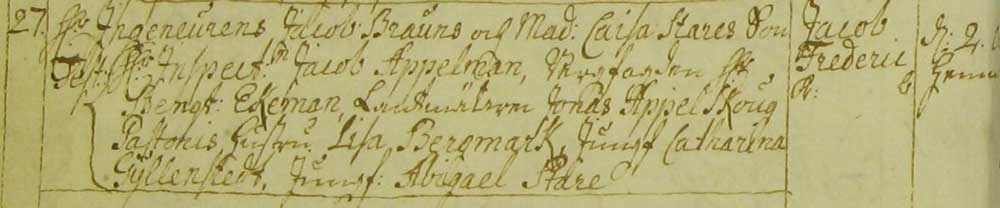 27. Hr: Ingeneurens Jacob Brauns och Mad: Caisa Stares Son
Test: Hr: Inspect:n Jacob Appelman, Hr
Bengt: Ekeman, Landtmätaren Jonas Appelskoug
Pastoris Hustru Lisa Bergmark, Jungf Catharina
Gyllenstedt. Jungf: Abigael Stare
Jacob
Frederic
d. 2.